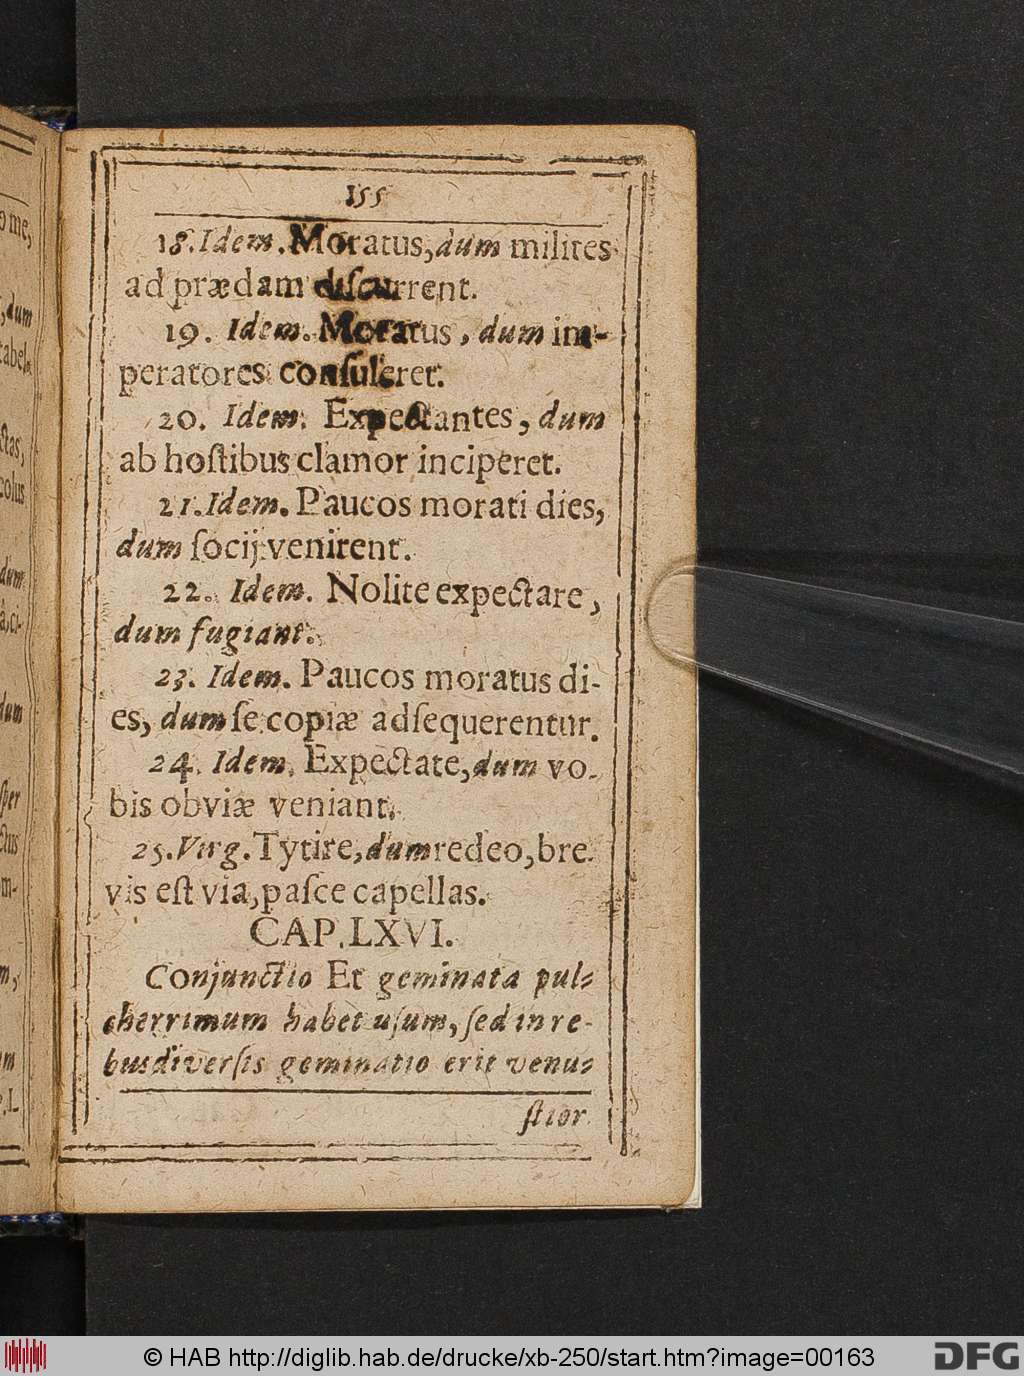 155
18. Idem. Moratus, dum milites
ad prædam diſcurrent.
19. Idem. Moratus, dum im-
peratores conſuleret.
20. Idem. Expectantes, dum
ab hoſtibus clamor inciperet.
21. Idem. Paucos morati dies,
dum ſocij venirent.
22. Idem. Nolite expectare,
dum fugiant.
23. Idem. Paucos moratus di-
es, dum ſe copiæ adſequerentur.
24. Idem. Expectate, dum vo-
bis obviæ veniant.
25. Virg. Tytire, dum redeo, bre-
vis eſt via, paſce capellas.
CAP. LXVI.
Conjunctio Et geminata pul-
cherrimum habet uſum, ſed in re-
bus diverſis geminatio erit venu-
ſtior
o me,
, dum
tabel-
ctas,
colus
dum
a, ci-
dum
ſper
ctus
m-
m,
P. L.
© HAB http://diglib.hab.de/drucke/xb-250/start.htm?image=00163
DFG